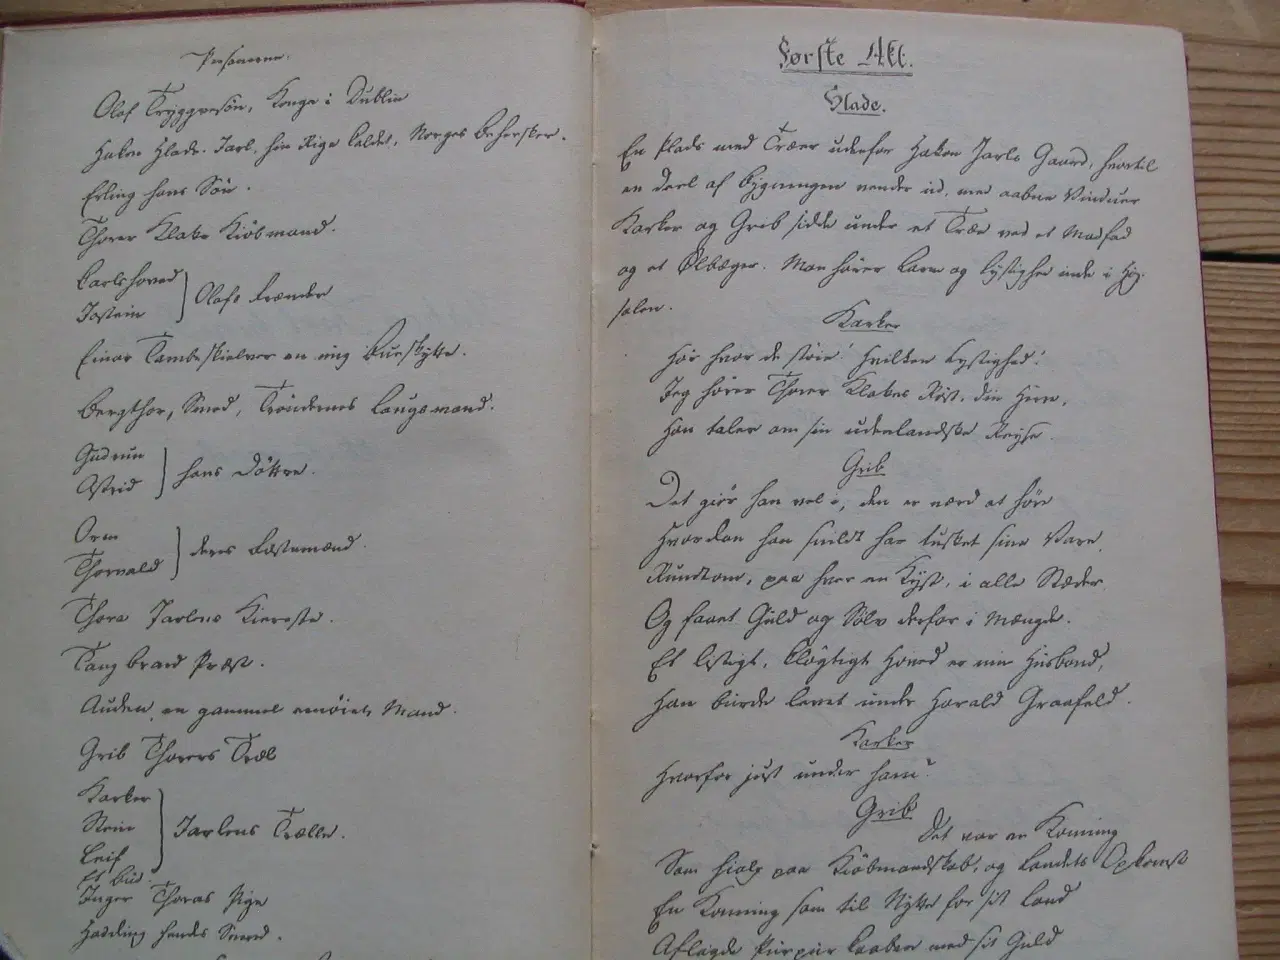 Personerne.
Olaf Tryggvesön, Konge i Dublin
Hakon Hlade-Jarl, hin Rige kaldet, Norges Behersker.
Erling hans Sön.
Thorer Klake Kiöbmand.
Carlshoved
Jostein
Olafs Frænder
Einar Tambeskielver en ung Bueskytte.
Bergthor, Smed, Tröndernes Laugmand.
Gudrun
Astrid
hans Döttre.
Orm
Thorvald
deres Fæstemænd.
Thora Jarlens Kiereste.
Tangbrand Præst.
Auden, en gammel eenöiet Mand.
Grib Thorers Træl
Karker
Stein
Leif
Jarlens Trælle.
Et Bud.
Inger Thoras Pige
Hadding hendes Svend.
Første Akt.
Hlade.
En Plads med Træer udenfor Hakon Jarls Gaard, hvortil
en Deel af Bygningen vender ud, med aabne Vinduer
Karker og Grib sidde under et Træ ved et Madfad
og et Ølbæger. Man hører Larm og Lystighed inde i Høj-
salen.
Karker
Hör hvor de støie! Hvilken Lystighed!
Jeg hører Thorer Klakes Røst, din Herre,
Han taler om sin udenlandske Reyse.
Grib
Det giör han vel i, den er værd at höre
Hvordan han snildt har tusket sine Vare,
Rundtom, paa hver en Kyst, i alle Stæder
Og faaet Guld og Sölv derfor i Mængde.
Et listigt, klögtigt Hoved er min Husbond,
Han burde levet under Harald Graafeld.
Karker
Hvorfor just under ham?
Grib
Det var en Konning
Som hialp paa Kiöbmandskab, og Landets Opkomst
En Konning som til Nytte for sit Land
Aflagde Purpurkaaben med sit Guld